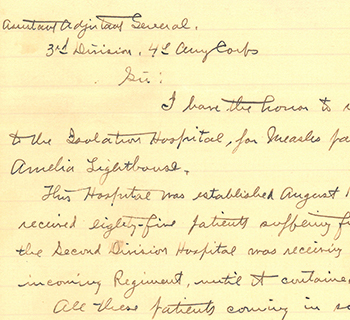 Assistant Adjutant General,
3rd Division, 4th Army Corbs
Sir:
I have the honor to
to the Isolation Hospital, for Measles
Amelia Lighthouse.
This Hospital was established August 1
recieved eighty-five patients suffering
the Second Division Hospital was receiving
incoming Regiment, until it contained
All these patients coming in